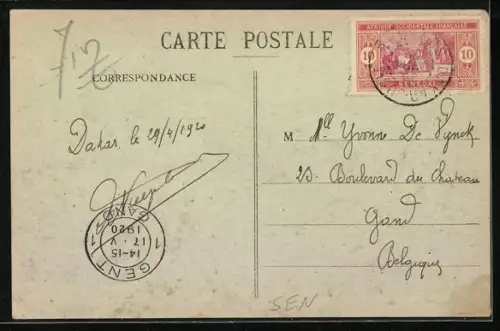 7/12
CARTE POSTALE
CORRESPONDANCE
AFRIQUE OCCIDENTALE FRANÇAISE
10 10
SÉNÉGAL
Dakar, le 29/4/1920
M Mlle Yvonne De Vynck
23. Boulevard du Chateau
Gand
Belgique
1 GENT 1
GAND
14-15
17·V
1920
SEN